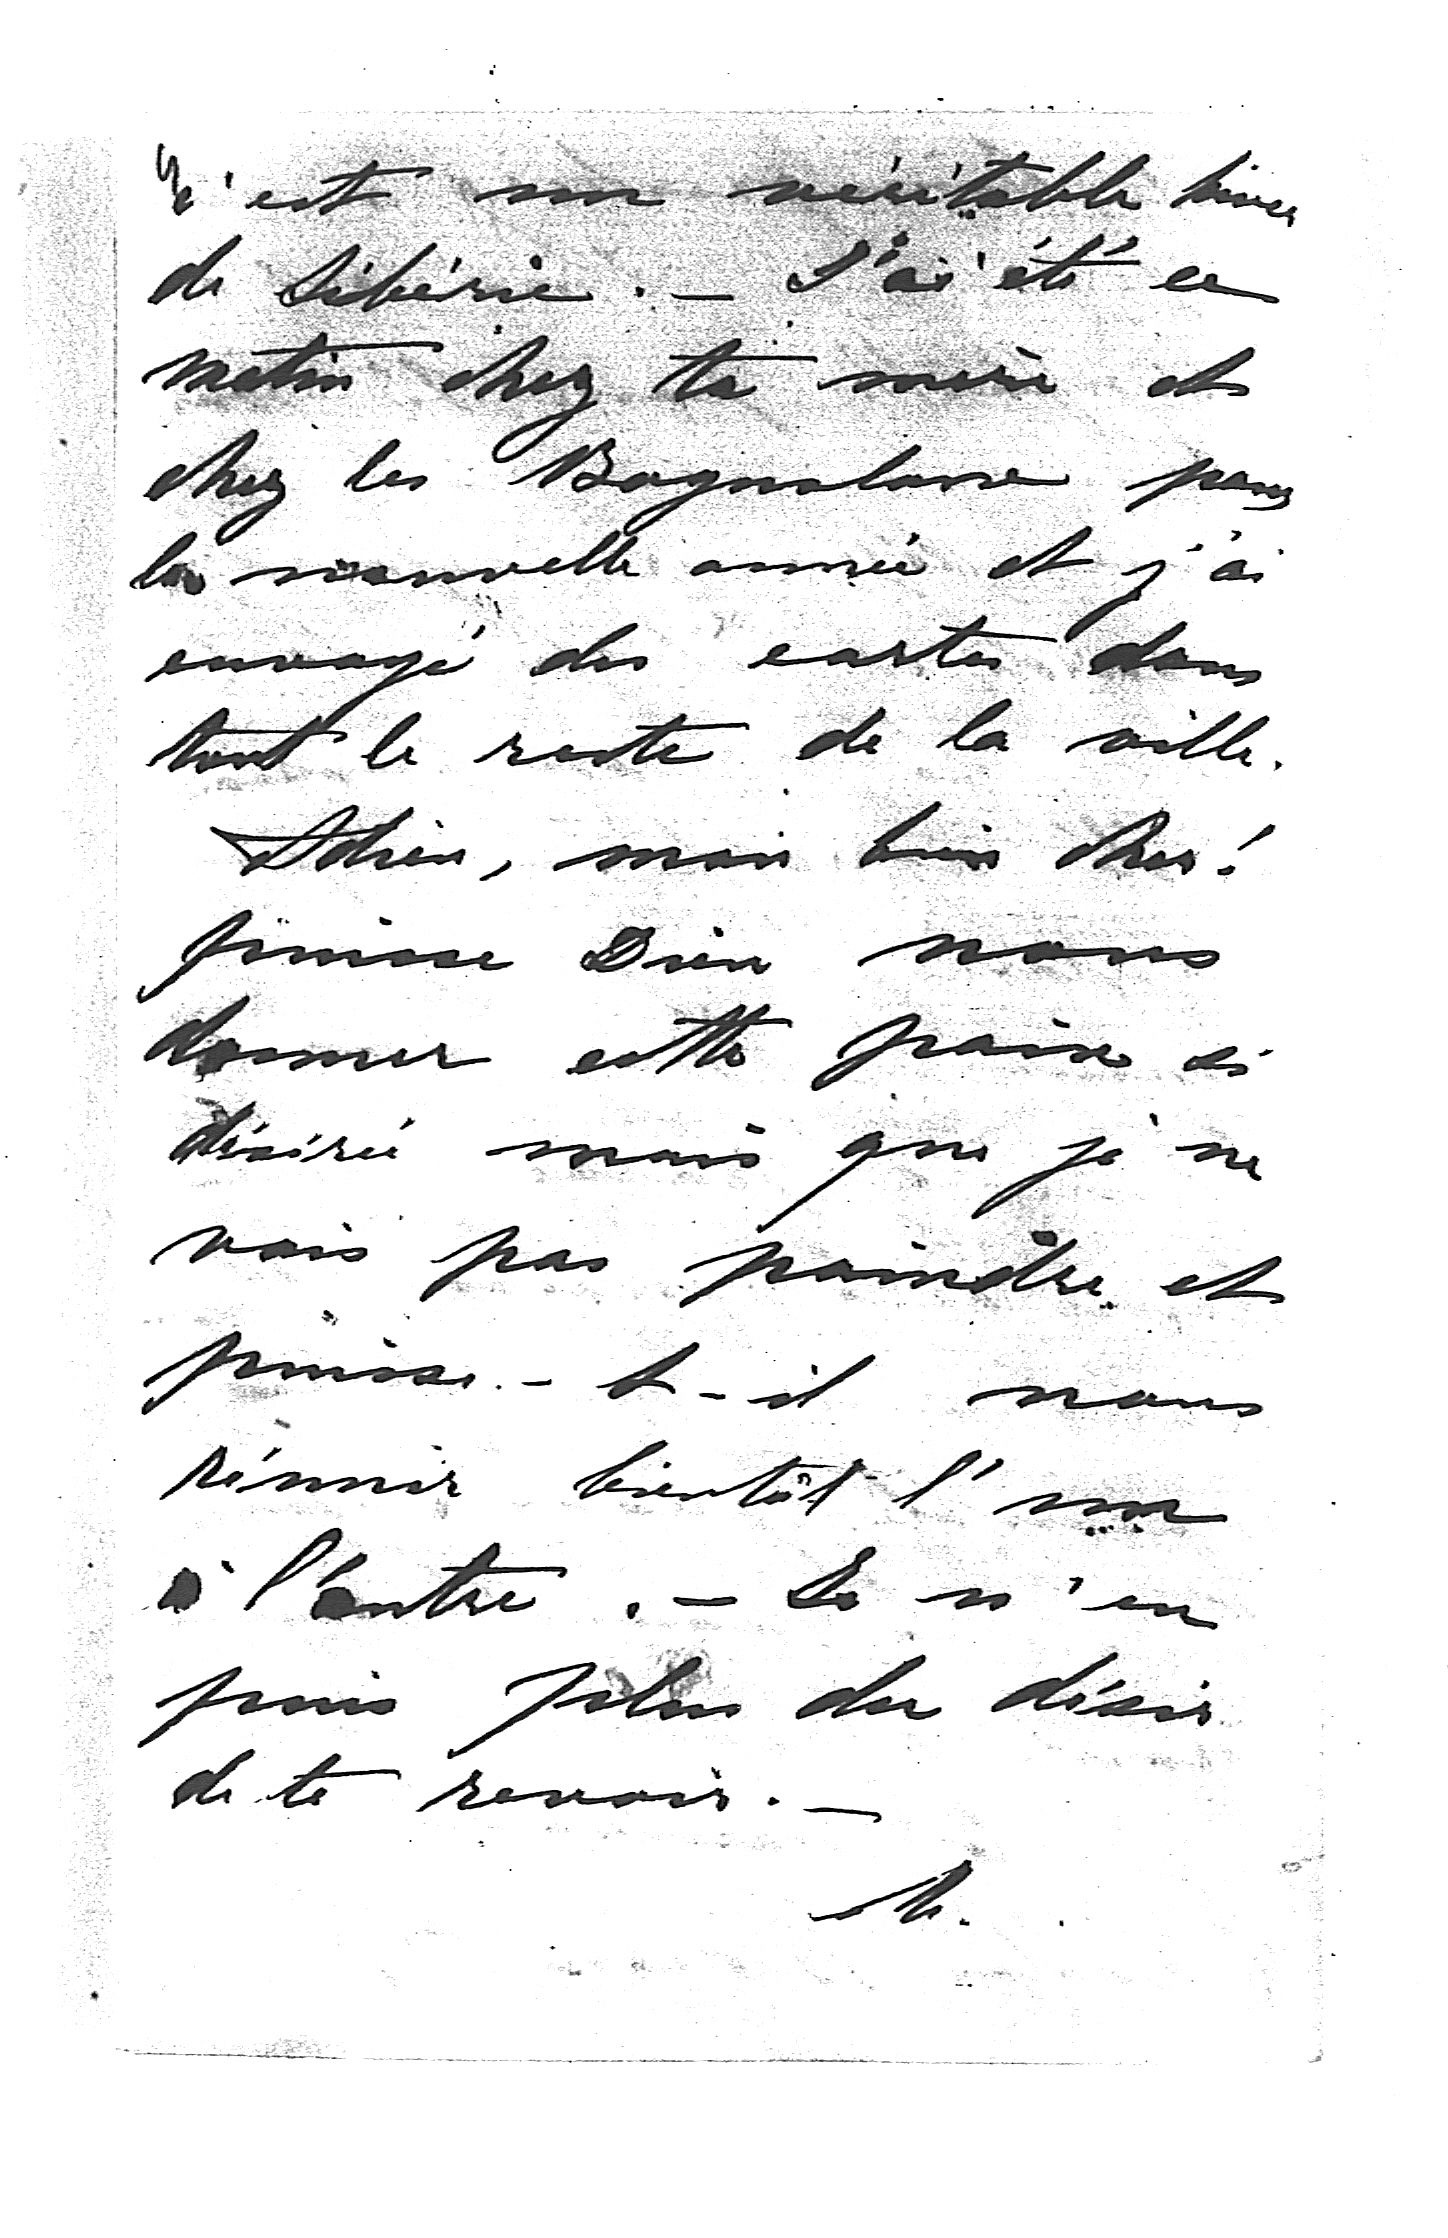 c'est un véritable hiver
de Sibérie. — J'ai été ce
matin chez ta mère et
chez les pour
la nouvelle année et j'ai
envoyé des cartes dans
tout le reste de la ville.
Adieu, mon bien cher!
puisse Dieu nous
donner cette paix si
désirée mais que je ne
vois pas poindre et
puisse-t-il nous
réunir bientôt l'un
à l'autre. — Je n'en
puis plus du désir
de te revoir. —
M.